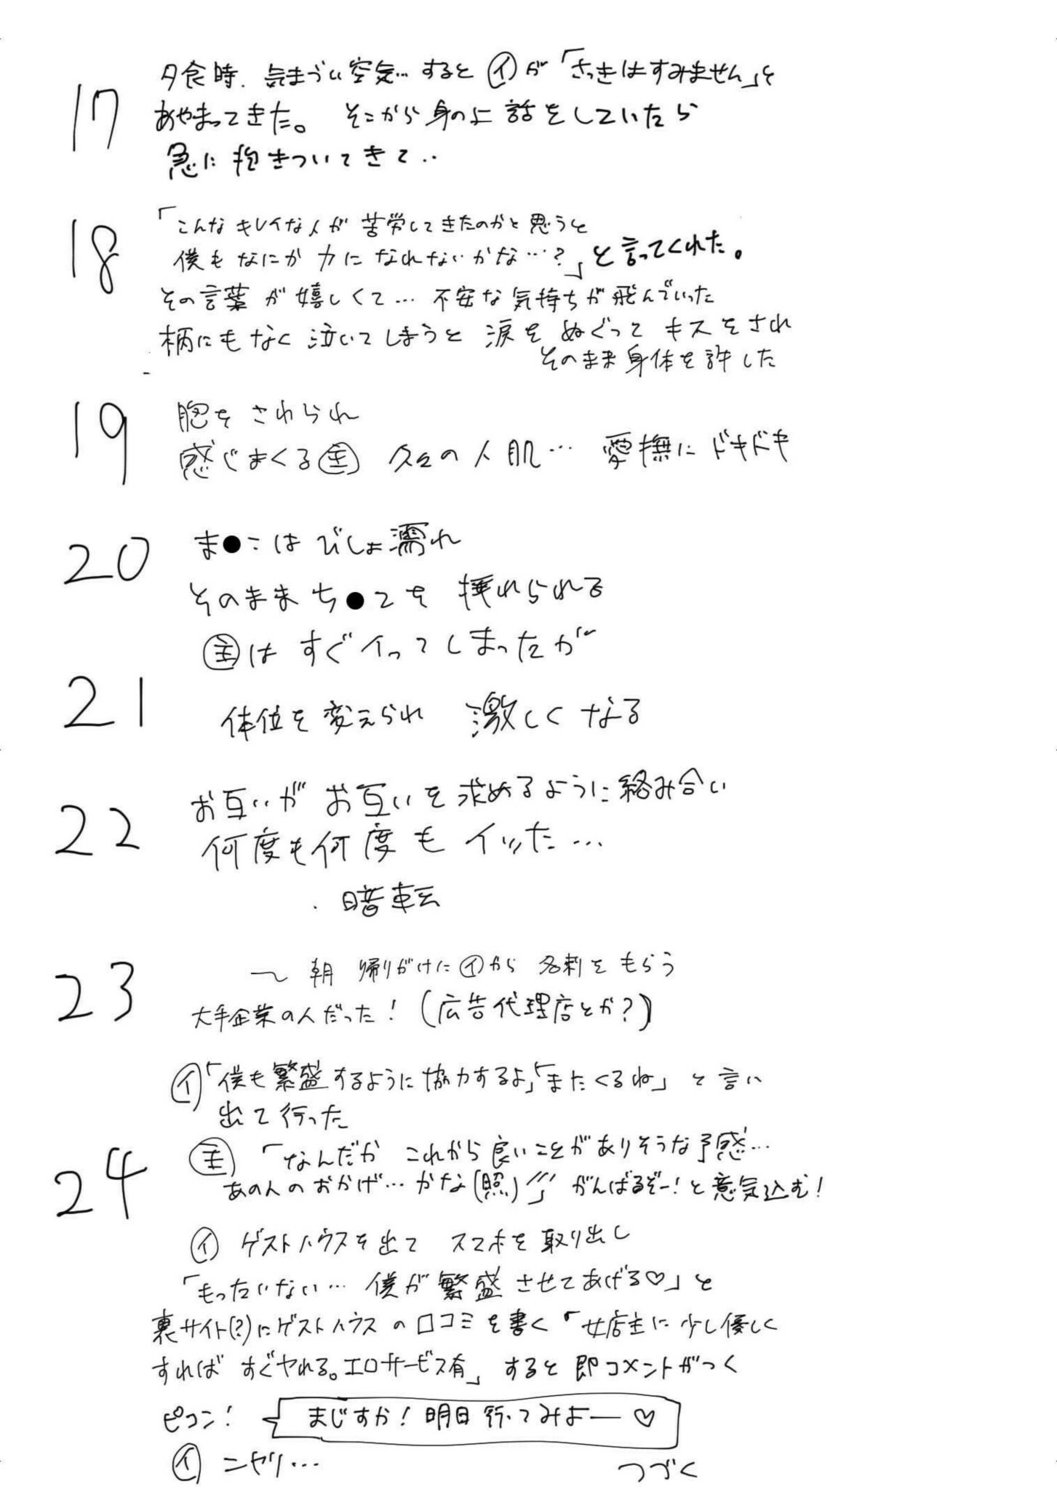 17
夕食時、気まづい空気… すると ㋑が「さっきはすみません」と
あやまってきた。 そこから身の上話をしていたら
急に抱きついてきて‥
18
「こんなキレイな人が苦労してきたのかと思うと
僕もなにか力になれないかな…?」と言ってくれた。
その言葉が嬉しくて… 不安な気持ちが飛んでいった
柄にもなく泣いてしまうと 涙をぬぐってキスをされ
そのまま身体を許した
19
胸をさわられ
感じまくる㊀ 久々の人肌… 愛撫にドキドキ
20
ま●こはびしょ濡れ
そのままち●こを挿れられる
主はすぐイってしまったが
21
体位を変えられ 激しくなる
22
お互いがお互いを求めるように絡み合い
何度も何度もイッた…
暗転
23
〜朝 帰りがけに㋑から名刺をもらう
大手企業の人だった!(広告代理店とか?)
㋑「僕も繁盛するように協力するよ」「またくるね」と言い
出て行った
24
主「なんだかこれから良いことがありそうな予感…
あの人のおかげ…かな(照)/// がんばるぞー!と意気込む!
㋑ ゲストハウスを出て スマホを取り出し
「もったいない… 僕が繁盛させてあげる♡」と
裏サイト(?)にゲストハウスの口コミを書く「女店主に少し優しく
すればすぐヤれる。エロサービス有」すると即コメントがつく
ピコン! まじすか!明日行ってみよー♡
㋑ ニヤリ…
つづく